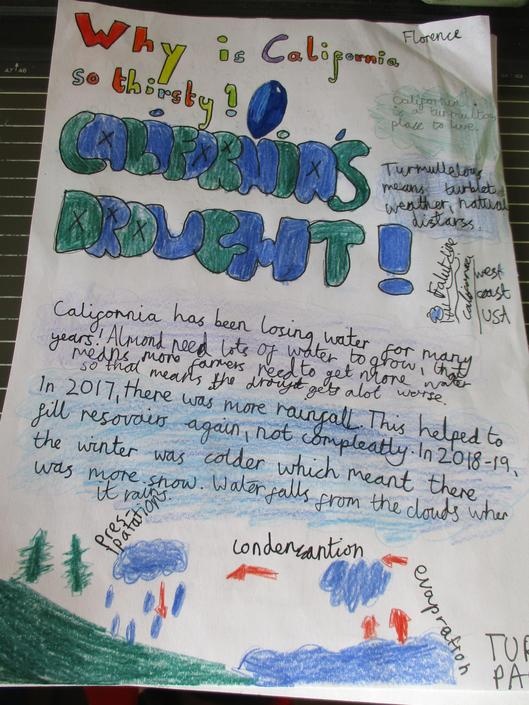 Florence
Why is California
so thirsty?
California
is a turmullous
place to live.
CALIFORNIA'S
DROUGHT!
Turmullolous
means turblet
weather, natural
distarss.
Falut line
California
west
coast
USA
Califonnia has been losing water for many
years! Almond need lots of water to grow, that
means more farmers need to get more water
so that means the drougt gets alot worse.
In 2017, there was more rainfall. This helped to
fill resovairs again, not compleatly. In 2018-19,
the winter was colder which meant there
was more snow. Water falls from the clouds wher
it rains.
Presi
patation
condencantion
evapraftion
TUR
PA